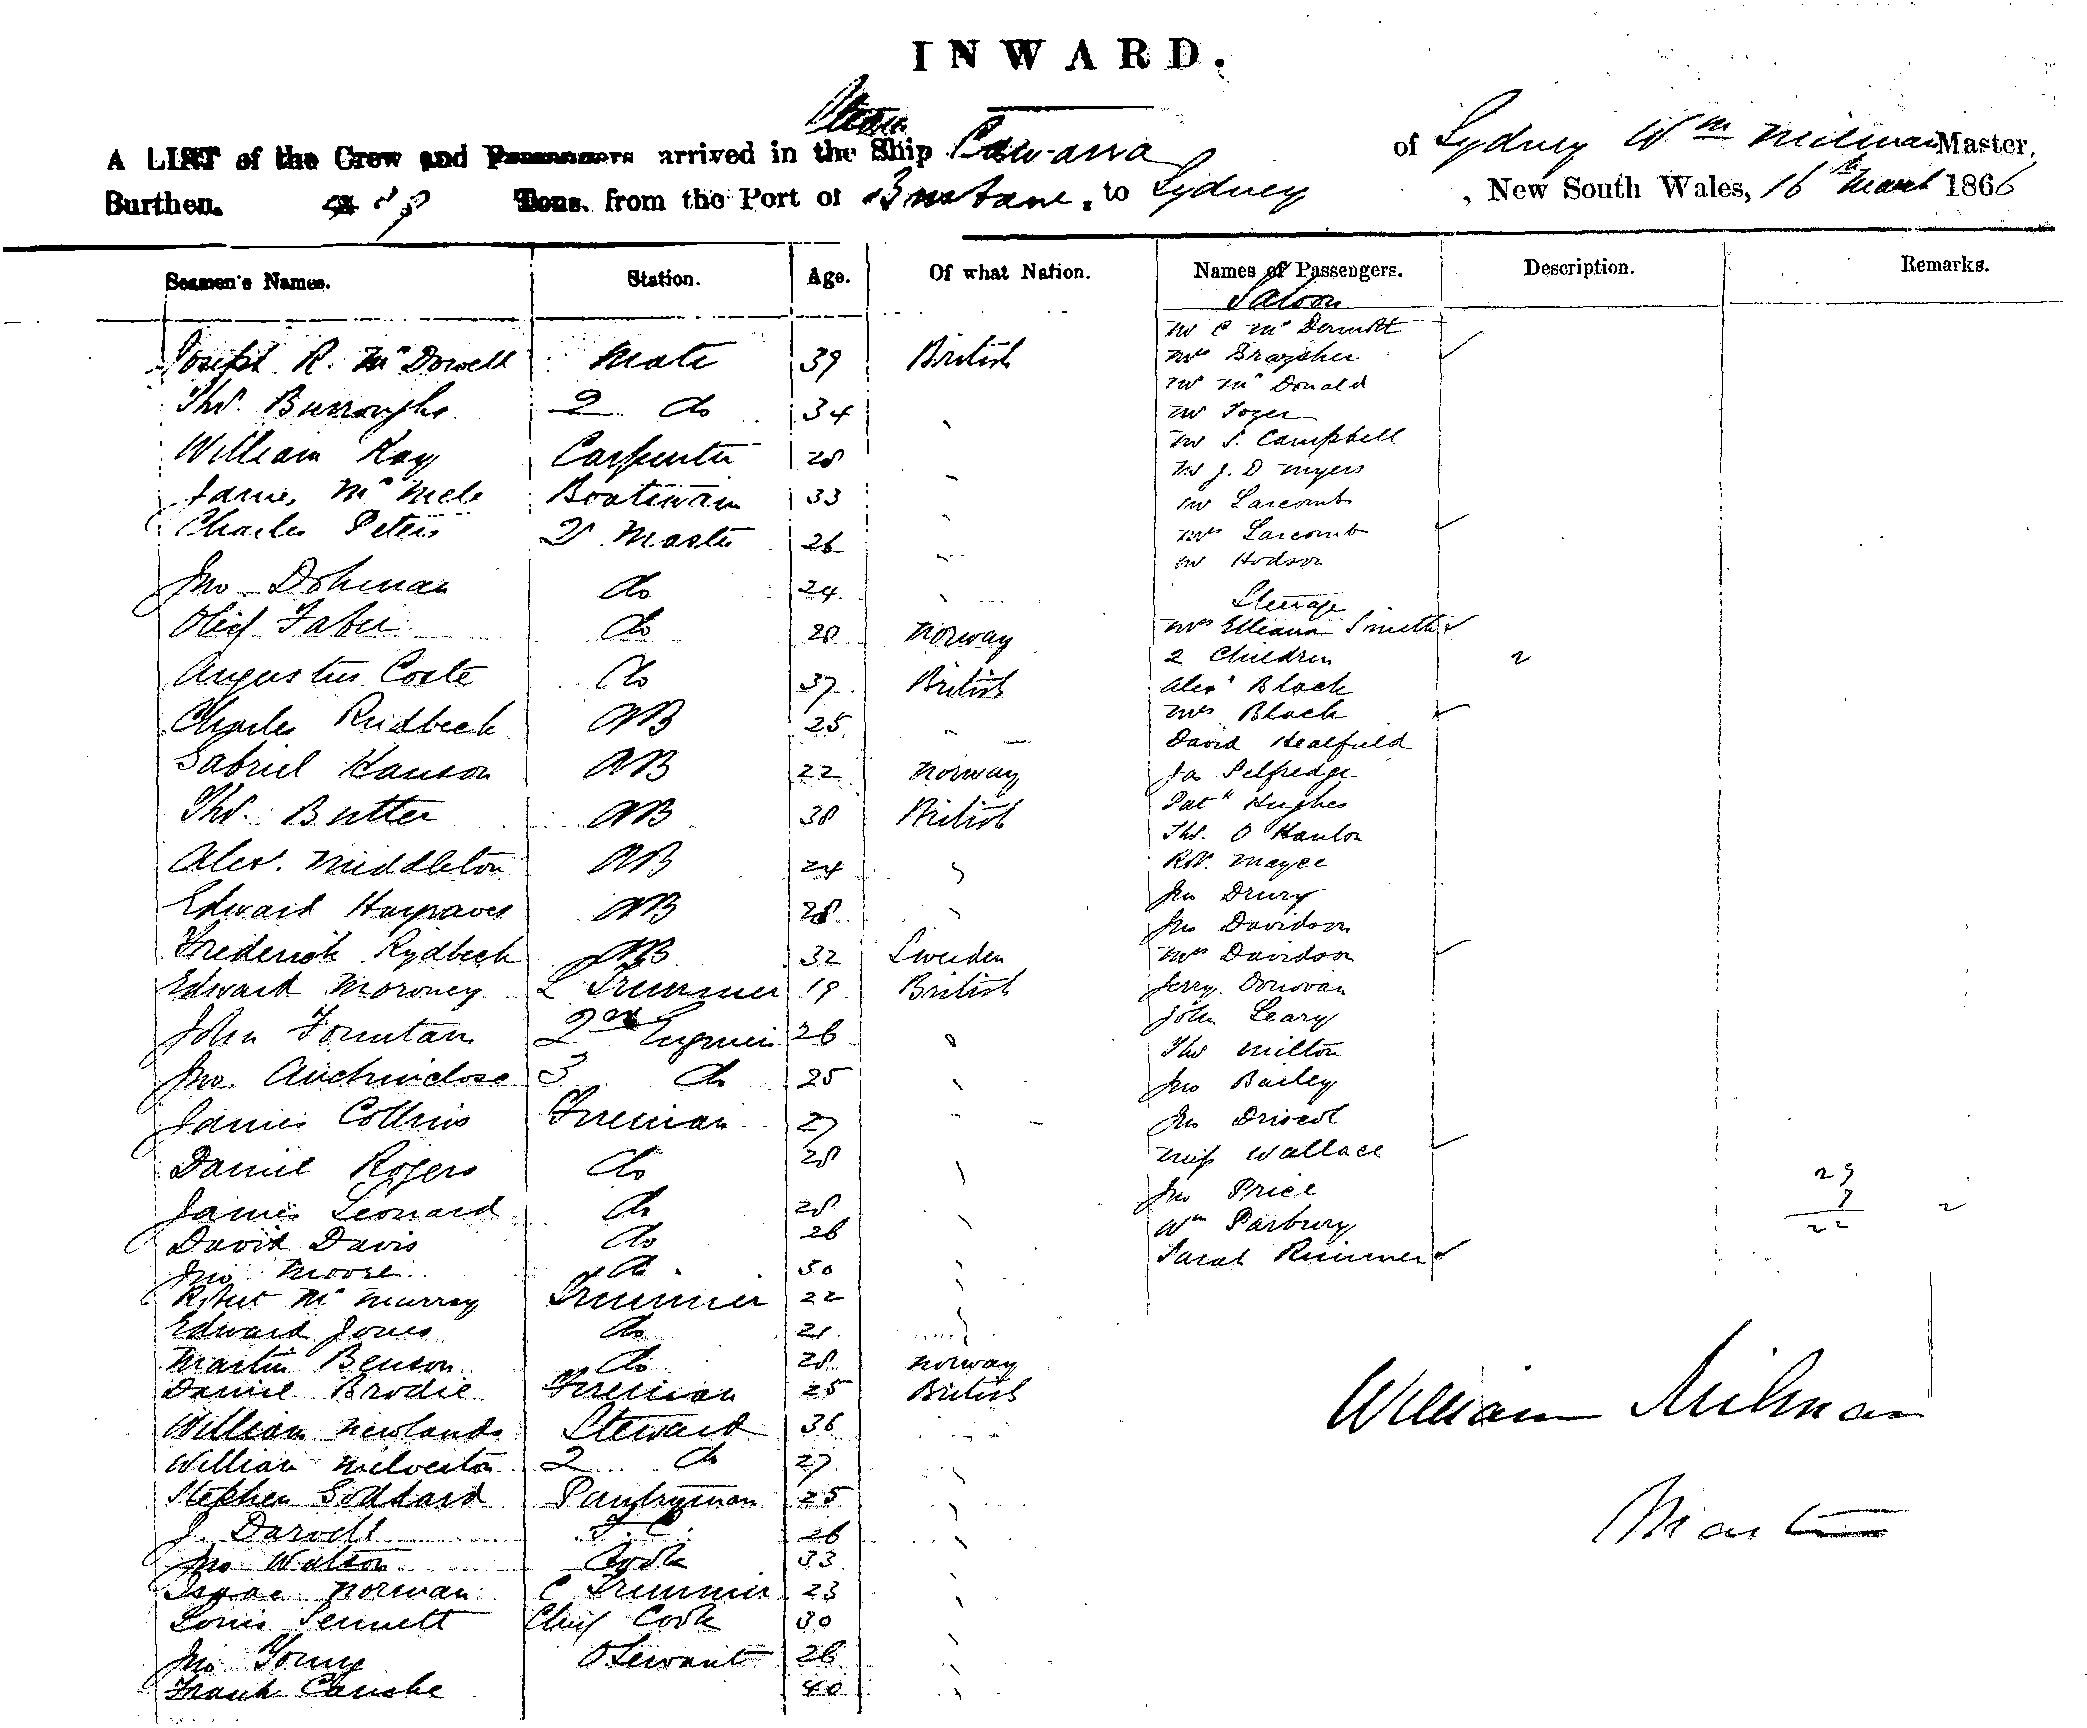 INWARD.
Steam
A LIST of the Crew and Passengers arrived in the Ship Cawarra of Sydney Wm Milman Master,
Burthen. Tons. from the Port of Brisbane, to Sydney, New South Wales, 16th March 1866
Seamen's Names. Station. Age. Of what Nation. Names of Passengers. Description. Remarks.
Saloon
Joseph R. McDowell Mate 39 British
Thos. Burroughs 2 do 34
William Kay Carpenter 28
James McMele Boatswain 33
Charles Peters Qr Master 26
Jno Dohman do 24
Olief Faber do 28 Norway
Augustus Coste do 37 British
Charles Rudbeck AB 25
Gabriel Hanson AB 22 Norway
Thos. Butter AB 38 British
Alex. Middleton AB 24
Edward Hargraves AB 28
Frederick Rydbeck AB 32 Sweden
Edward Moroney Trimmer 19 British
John Fountain 2nd Engineer 26
Jno. Auchinclose 3 do 25
James Collins Fireman 27
Daniel Rogers do 28
James Leonard do 28
David Davis do 26
Jno Moore do 30
Robert McMurray Trimmer 22
Edward Jones do 21
Martin Benson do 28 Norway
Daniel Brodie Fireman 25 British
William Newlands Steward 36
William Milverton 2 do 27
Stephen Goddard Pantryman 25
J. Darvell 26
Jno Watson Cook 33
Isaac Norman C Trimmer 23
Louis Sennett Chief Cook 30
Jno Young O Servant 26
Frank Canske 40
Mr C McDermott
Mrs Braysher
Mr McDonald
Mr Tozer
Mr S. Campbell
Mr J. D Myers
Mr Larcomb
Mrs Larcomb
Mr Hodson
Steerage
Mrs Elleana Smith
2 Children 2
Alexr Black
Mrs Black
David Healfield
Ja Selfredge
Patk Hughes
Thos. O Hanlon
Rt. Magee
Jno Drury
Jno Davidson
Mrs Davidson
Jerry Donovan
John Leary
Thos Milton
Jno Bailey
Jno Driscol
Miss Wallace
Jno Price
Wm Parbury
Sarah Rimmer
29
7
22 2
William Milman
Master